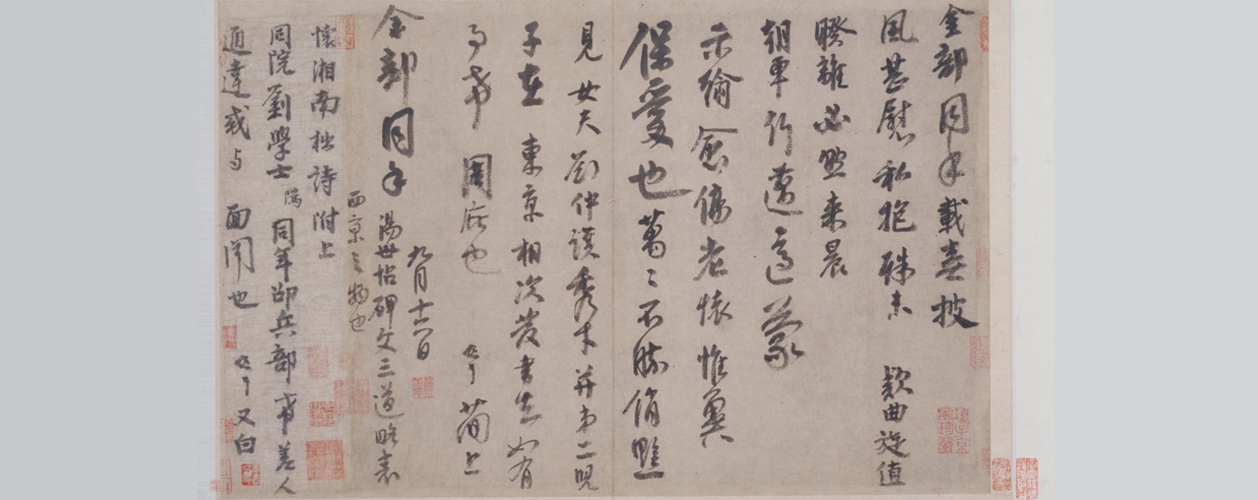 金部同年載喜披
風甚慰私抱殊未 款曲旋值
睽離必然來晨
朝車行邁適蒙
示翰愈傷老懷惟冀
保愛也萬〻不勝銷黯
見女夫劉仲謨秀才并弟二兒
子在東京相次發書去如有
事希 周庇也 簡上
金部同年 九月十六日
湯世帖碑文三道略表
西京之物也
懷湘南拙詩附上
同院劉學士 同年邵兵部 希差人
通達或与 面聞也 又白